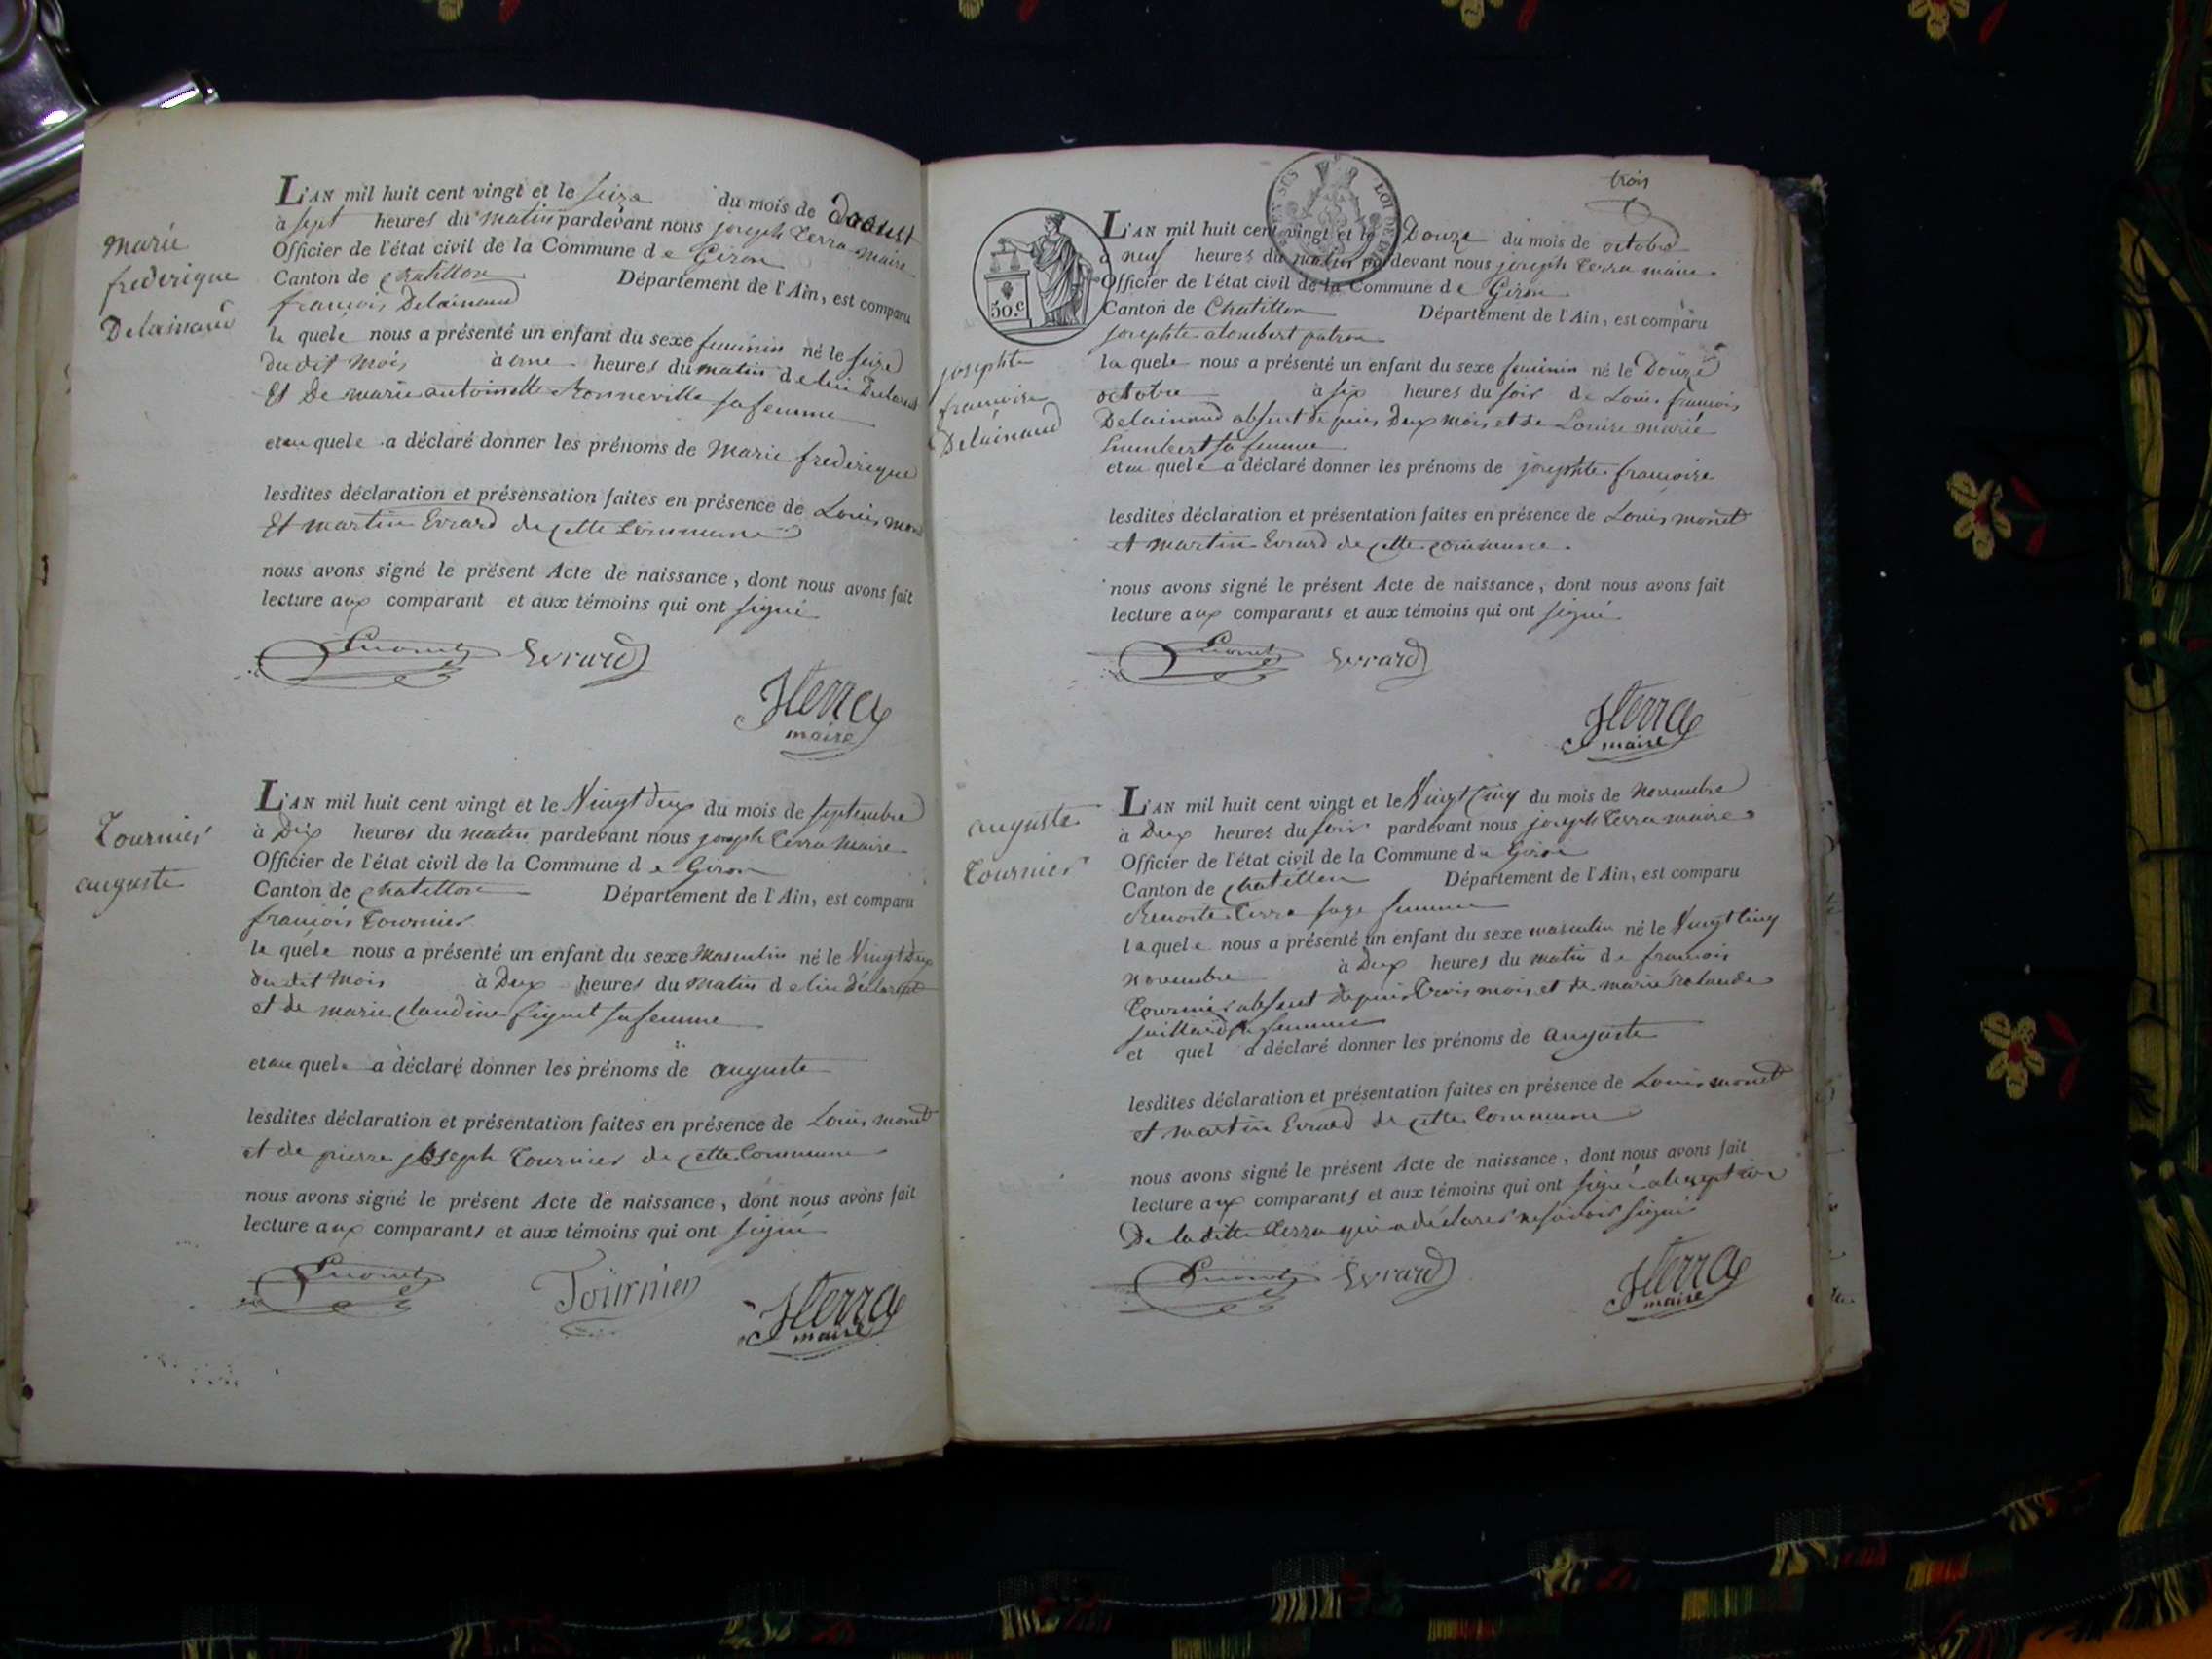 marie
frederique
Delainaud
L'AN mil huit cent vingt et le seize du mois de daoust
à sept heures du matin pardevant nous joseph terra maire
Officier de l'état civil de la Commune de Giron
Canton de chatillon Département de l'Ain, est comparu
françois Delainaud
le quele nous a présenté un enfant du sexe feminin né le seize
du dit mois à une heures du matin de lui Déclarant
Et De marie antoinette Monneville sa femme
et au quele a déclaré donner les prénoms de Marie frederique
lesdites déclaration et présensation faites en présence de Louis monet
Et martin Evrard de cette Commune
nous avons signé le présent Acte de naissance, dont nous avons fait
lecture aux comparant et aux témoins qui ont signé
Lmonet Evrard
JTerra
maire
Tournier
auguste
L'AN mil huit cent vingt et le Vingt deux du mois de septembre
à Dix heures du matin pardevant nous joseph terra Maire
Officier de l'état civil de la Commune de Giron
Canton de chatillon Département de l'Ain, est comparu
françois Tournier
le quele nous a présenté un enfant du sexe Masculin né le Vingt Deux
du dit Mois à Deux heures du Matin de lui déclarant
et de marie claudine figuet sa femme
et au quele a déclaré donner les prénoms de auguste
lesdites déclaration et présentation faites en présence de Louis monet
et de pierre joseph Tournier de cette Commune
nous avons signé le présent Acte de naissance, dont nous avons fait
lecture aux comparants et aux témoins qui ont signé
Lmonet Tournier JTerra
maire
trois
50.c
EN SUS LOI DE
josephte
francoise
Delainaud
L'AN mil huit cent vingt et le Douze du mois de octobre
à neuf heures du matin pardevant nous joseph terra maire
Officier de l'état civil de la Commune de Giron
Canton de Chatillon Département de l'Ain, est comparu
josephte alombert patron
la quele nous a présenté un enfant du sexe feminin né le Douze
octobre à six heures du soir de Louis francois
Delainaud absent depuis Deux mois et de Louise marie
humbert sa femme
et au quele a déclaré donner les prénoms de josephte francoise
lesdites déclaration et présentation faites en présence de Louis monet
et martin Evrard de cette commune.
nous avons signé le présent Acte de naissance, dont nous avons fait
lecture aux comparants et aux témoins qui ont signé
Lmonet Evrard
JTerra
maire
auguste
Tournier
L'AN mil huit cent vingt et le Vingt Cinq du mois de Novembre
à Deux heures du soir pardevant nous joseph terra maire
Officier de l'état civil de la Commune de Giron
Canton de chatillon Département de l'Ain, est comparu
Benoite Terra sage femme
la quele nous a présenté un enfant du sexe masculin né le Vingt Cinq
Novembre à Deux heures du matin de francois
Tournier absent depuis Trois mois et de marie rolande
juillard sa femme
et quel a déclaré donner les prénoms de auguste
lesdites déclaration et présentation faites en présence de Louis monet
et martin Evrard de cette Commune
nous avons signé le présent Acte de naissance, dont nous avons fait
lecture aux comparants et aux témoins qui ont signé à lexception
De la ditte Terra qui a déclarer ne savoir signer
Lmonet Evrard JTerra
maire